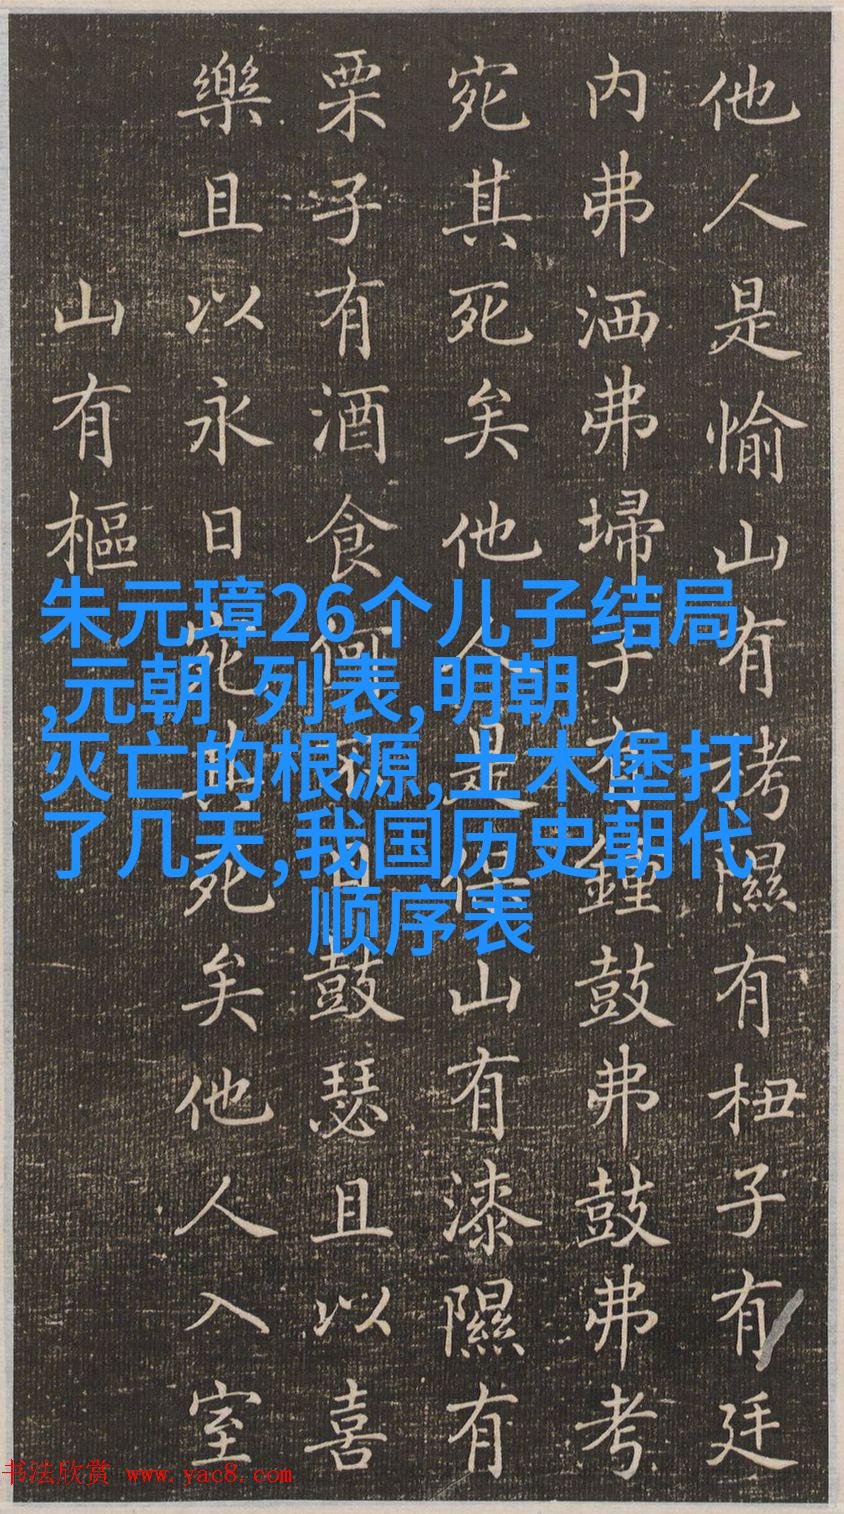 他人是愉山有栲隰有杻子有廷
内弗洒弗埽子有鐘鼓弗鼓弗考
宛其死矣他人是保山有漆隰有
栗子有酒食何不日鼓瑟且以喜
樂且以永日宛其死矣他人入室
山有樞
朱元璋26个儿子结局
,元朝 列表,明朝
灭亡的根源,土木堡打
了几天,我国历史朝代
顺序表
书法欣赏 www.yac8.com